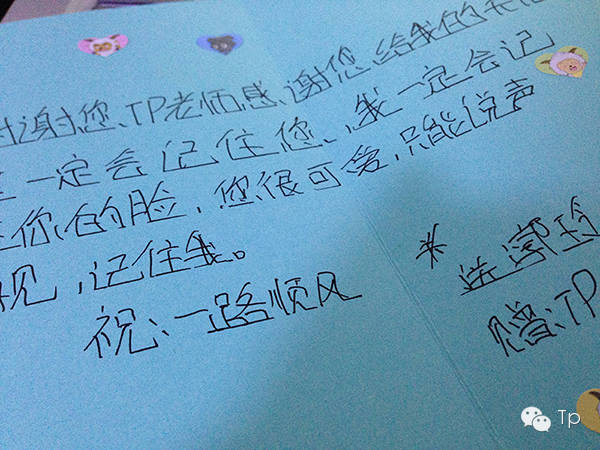 谢谢您、TP老师感谢您、给我的关
一定会记住您、我一定会记
你的脸,您很可爱,只能说声
见,记住我。
祝:一路顺风
*
赠:TP
Tp